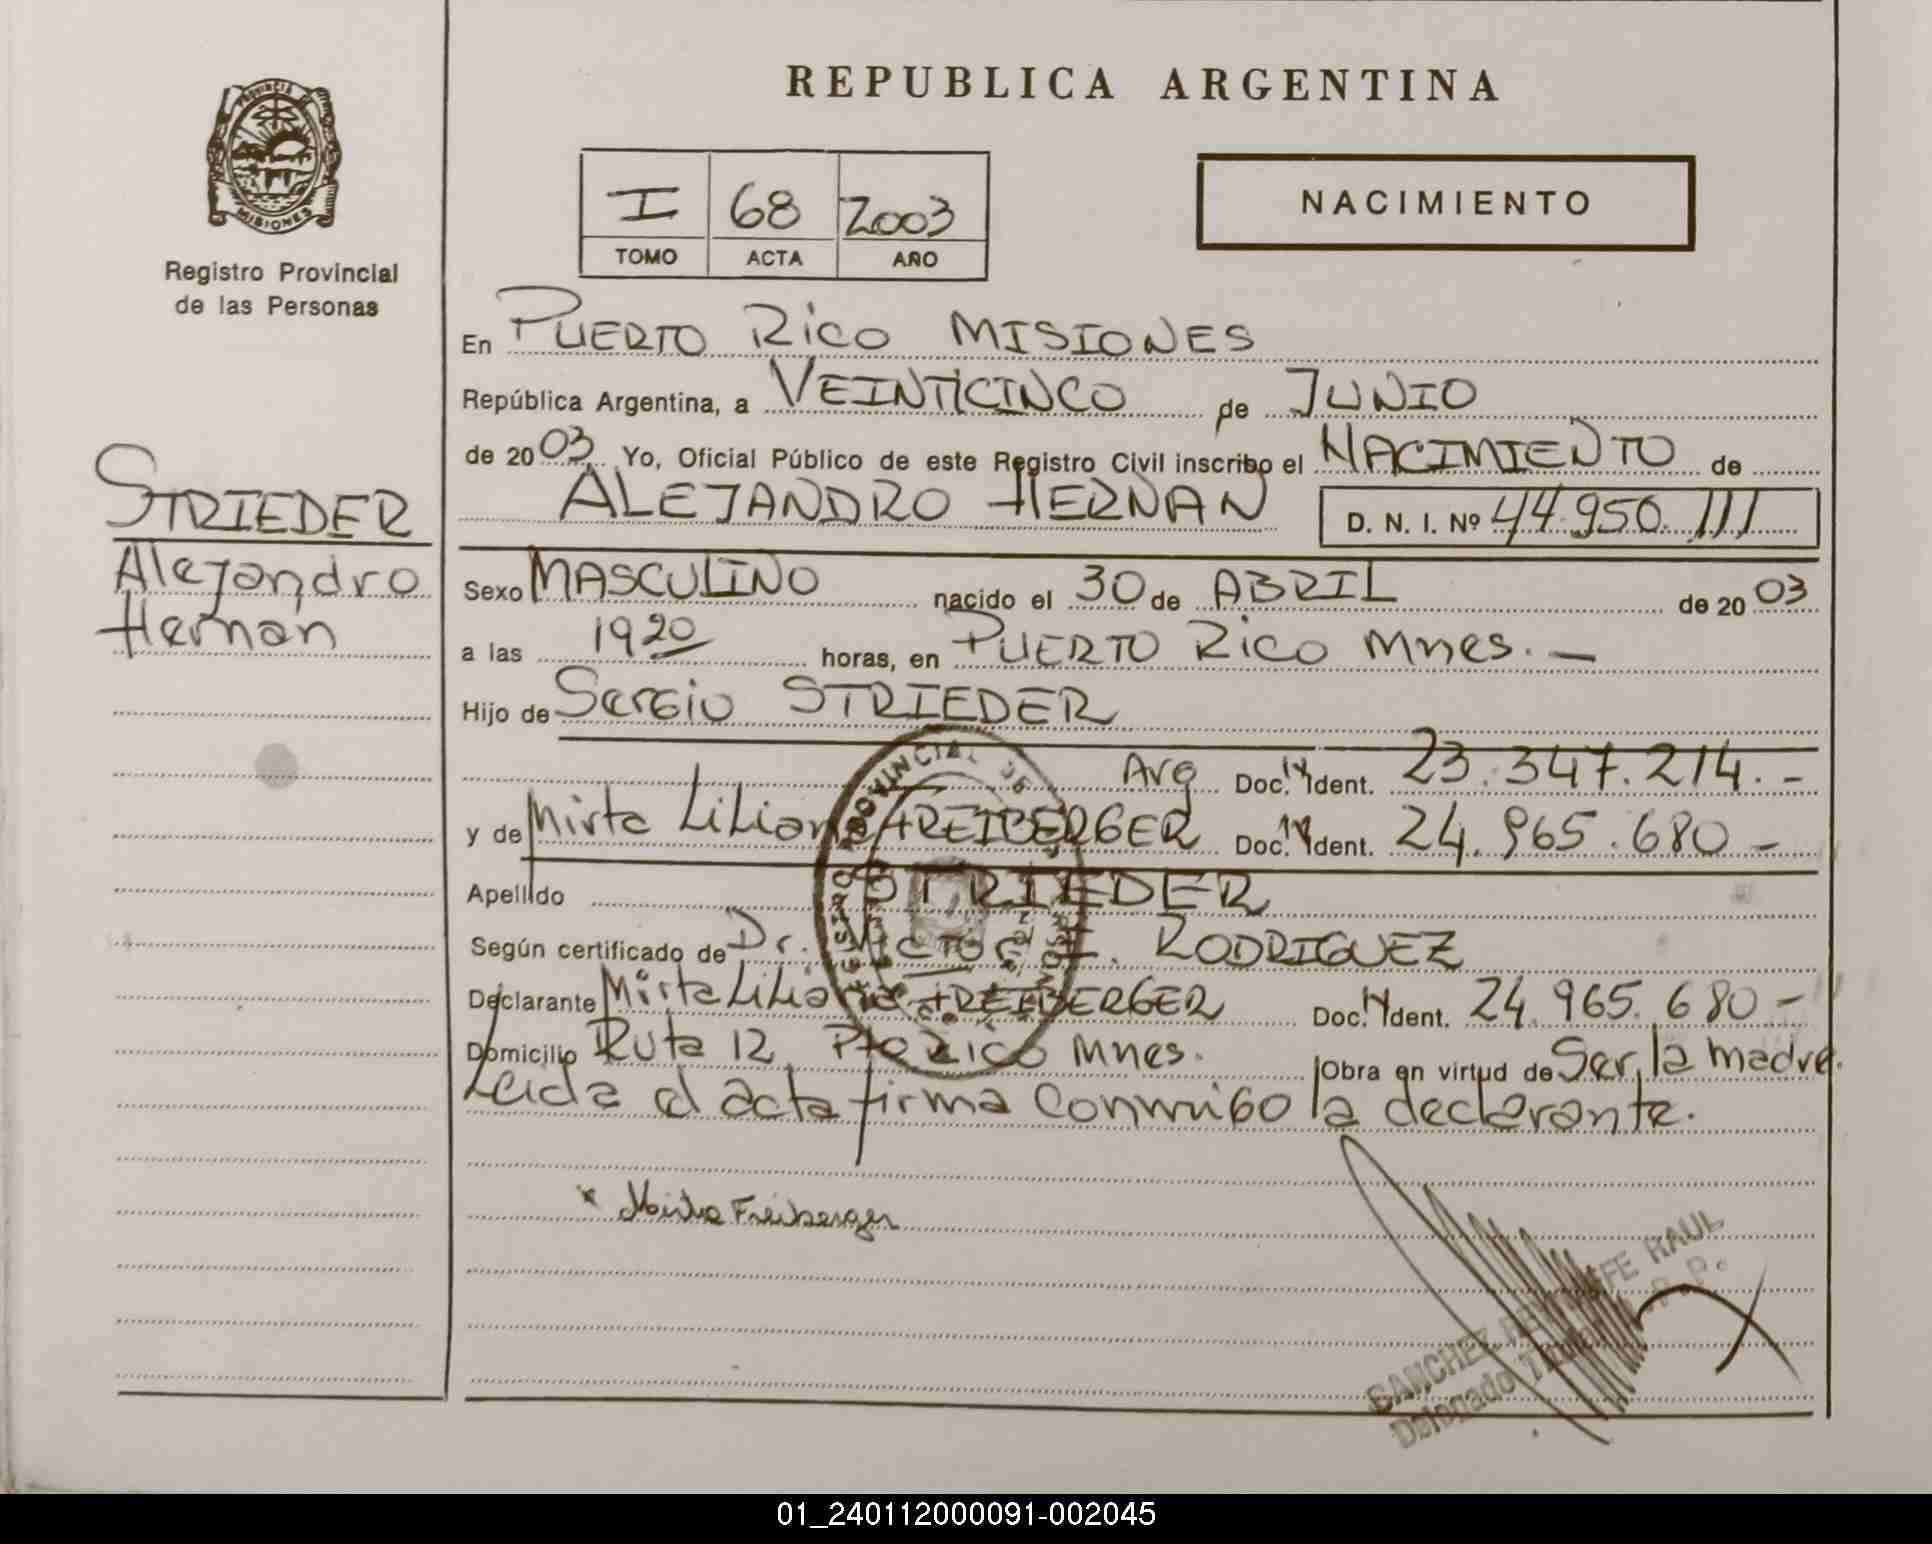 REPUBLICA ARGENTINA
PROVINCIA DE
MISIONES
Registro Provincial
de las Personas
I 68 2003
TOMO ACTA AÑO
NACIMIENTO
En PUERTO Rico MISIONES
República Argentina, a VEINTICINCO de JUNIO
de 2003 Yo, Oficial Público de este Registro Civil inscribo el NACIMIENTO de
ALEJANDRO HERNAN D. N. I. Nº 44.950.111
STRIEDER
Alejandro
Hernan
Sexo MASCULINO nacido el 30 de ABRIL de 2003
a las 1920 horas, en PUERTO Rico Mnes. —
Hijo de Sergio STRIEDER
Arg Doc. N Ident. 23.347.214.-
y de Mirta Liliana FREIBERGER Doc. N Ident. 24.965.680-
Apellido STRIEDER
Según certificado de Dr. Victor RODRIGUEZ
Declarante Mirta Liliana FREIBERGER Doc. N Ident. 24.965.680-
Domicilio Ruta 12 Pto Rico Mnes. Obra en virtud de Ser la madre.
Leida el acta firma conmigo la declarante.
x Mirta Freiberger
SANCHEZ RAUL
Delegado
01_240112000091-002045